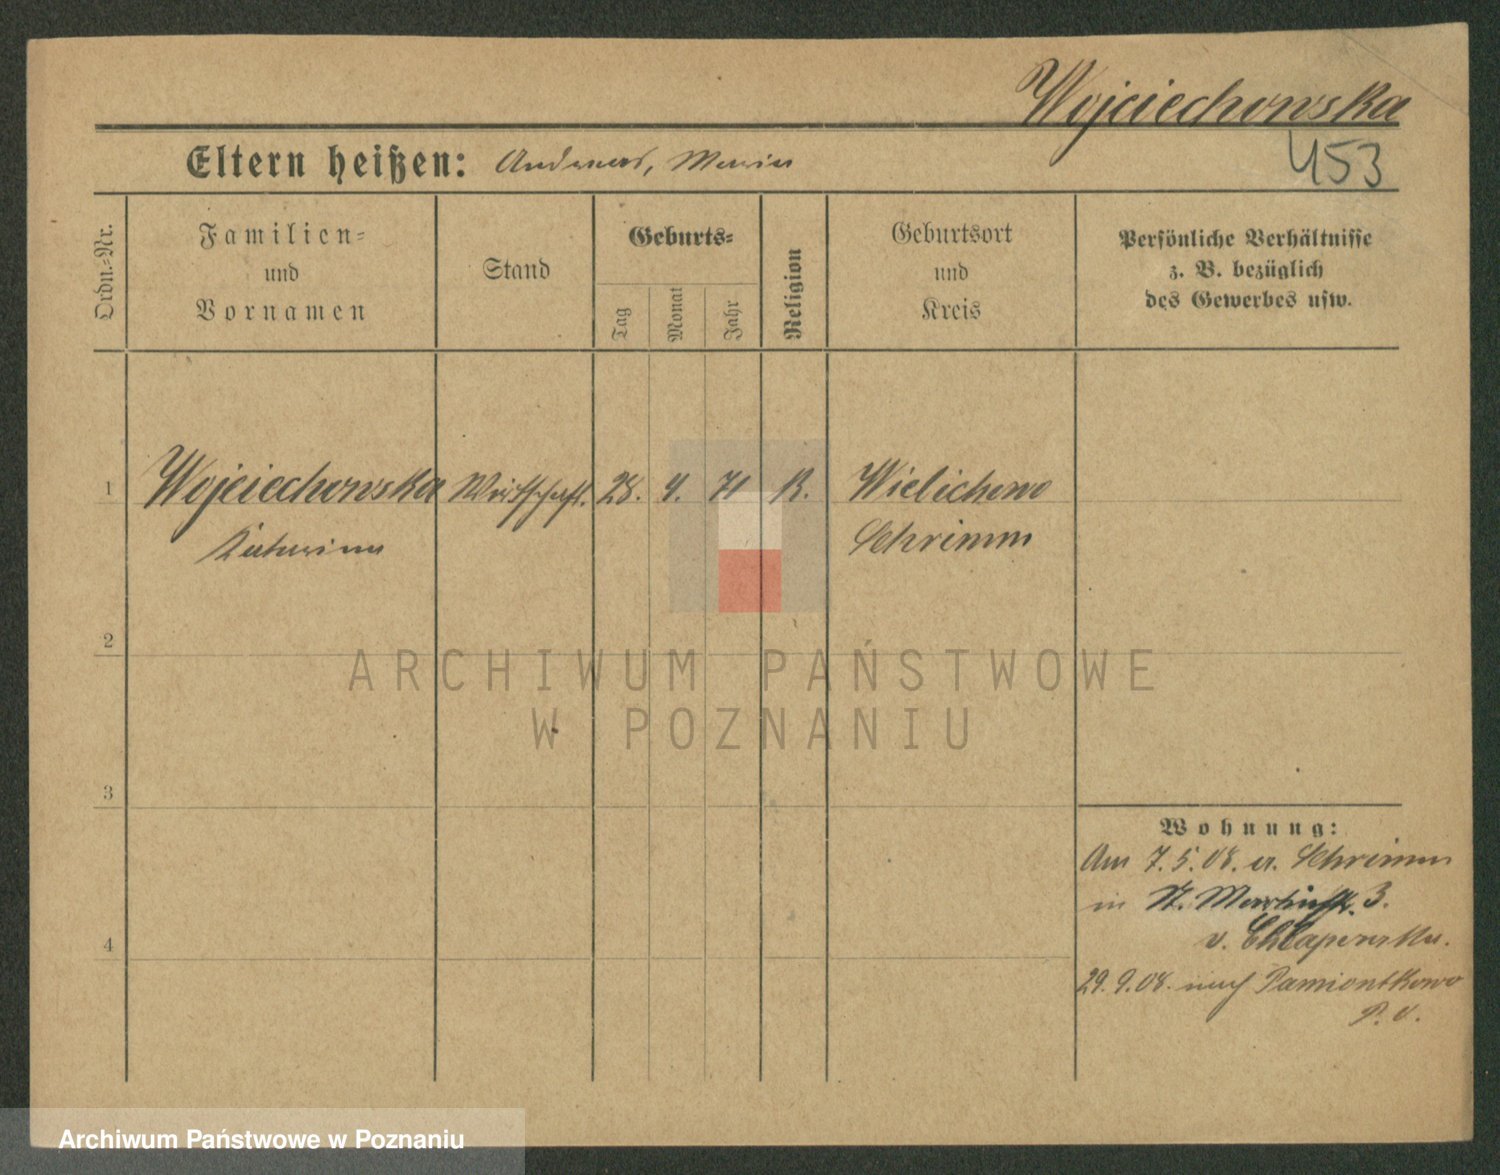 Wojciechowska
Eltern heißen: Andreas, Maria
453
Ordn.-Nr.
Familien-
und
Vornamen
Stand
Geburts-
Tag
Monat
Jahr
Religion
Geburtsort
und
Kreis
Persönliche Verhältnisse
z. B. bezüglich
des Gewerbes usw.
1
Wojciechowska Wirtschaft. 28. 4. 71 K. Wielichowo
Katharina
Schrimm
2
3
4
ARCHIWUM PAŃSTWOWE
W POZNANIU
Wohnung:
Am 7.5.08. Schrimm
in St. Martinstr. 3.
v. Chlapowska.
29.9.08. nach Pamiontkowo
P. O.
Archiwum Państwowe w Poznaniu